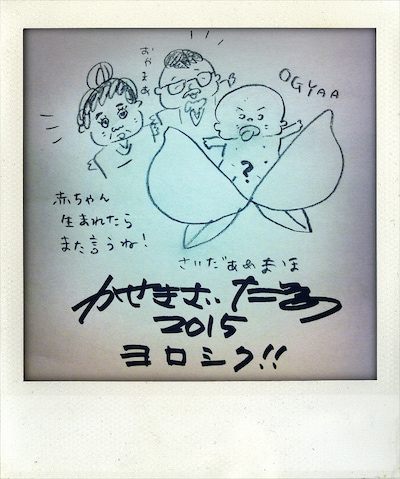 おやまあ
OGYAA
?
赤ちゃん
生まれたら
また言うね!
さいだぁめまほ
かせきさいだぁ
2015
ヨロシク!!